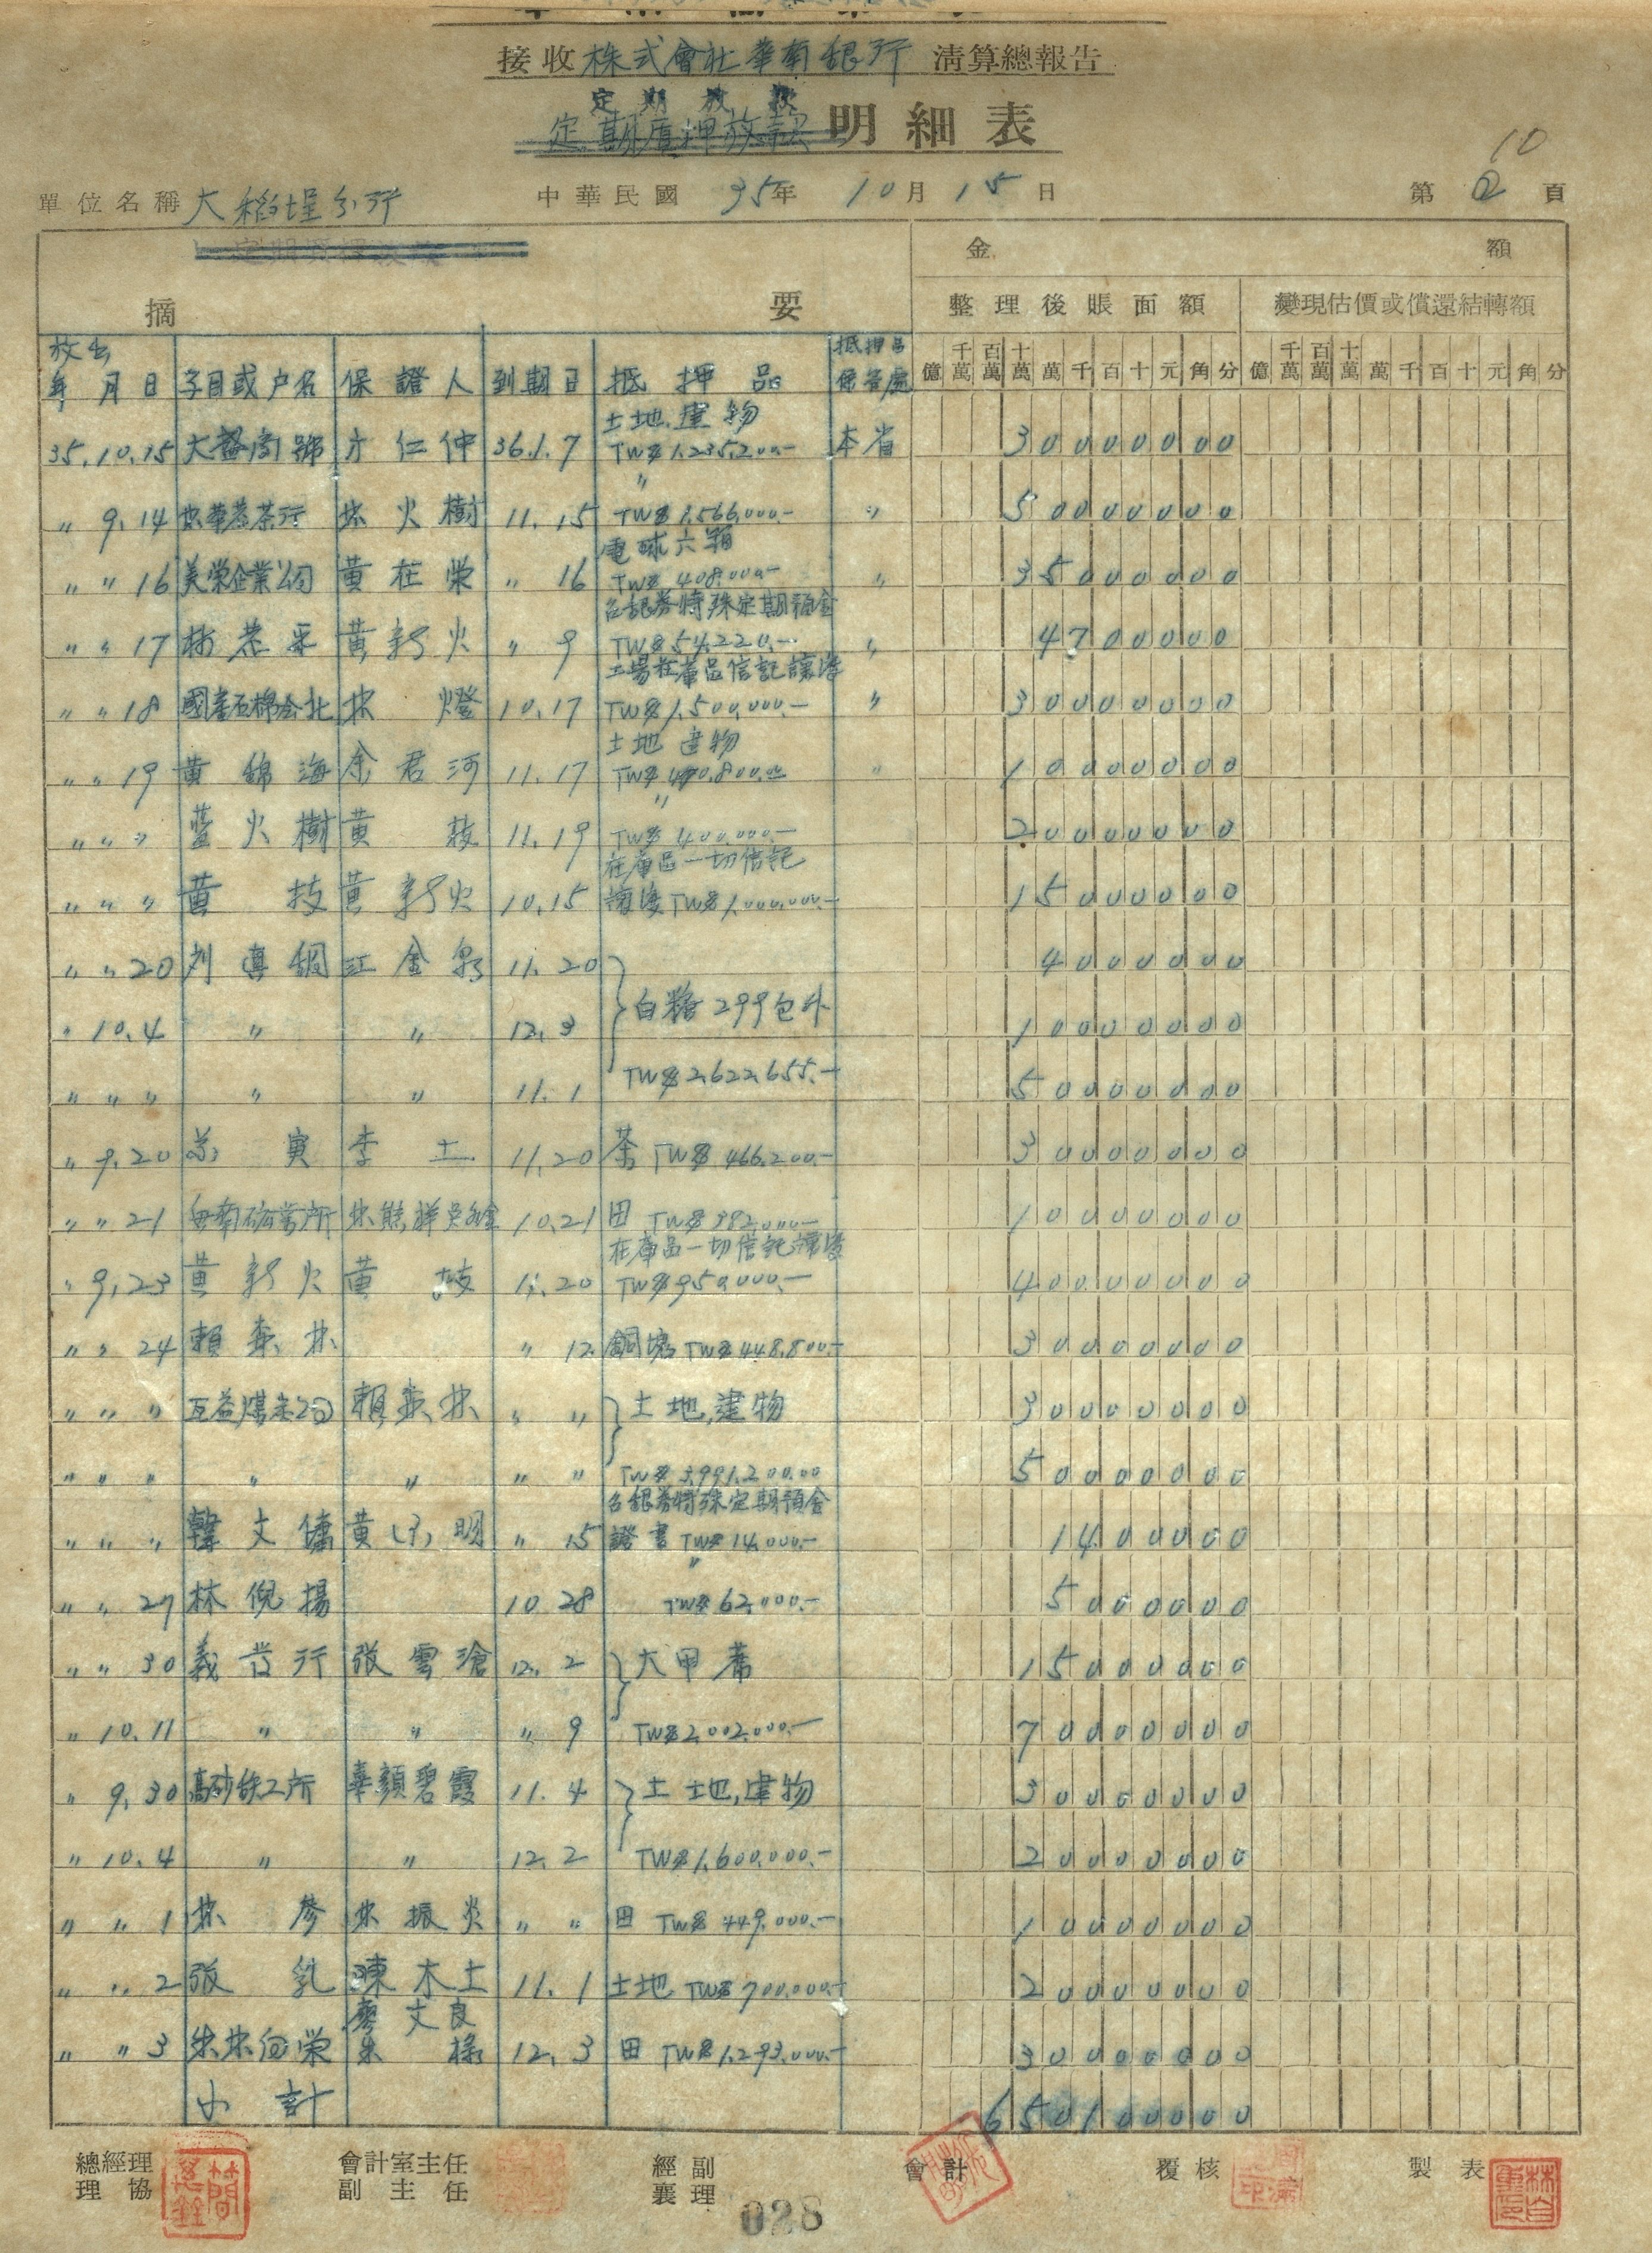 接收 株式會社華南銀行 清算總報告
定期放款
定期質押放款 明細表
10
單位名稱 大稻埕分行 中華民國 35年 10月 15日 第 2 頁
金額
摘要 整理後賬面額 變現估價或償還結轉額
放出 抵押品
年月日 子目或户名 保證人 到期日 抵押品 保管處 億 千萬 百萬 十萬 萬 千 百 十 元 角 分 億 千萬 百萬 十萬 萬 千 百 十 元 角 分
土地.建物
35.10.15 大 商號 仁仲 36.1.7 TW$1,235,200.- 本省 30000000
〃
〃 9.14 茶行 林火樹 11.15 TW$1,566,000.- 〃 50000000
電球六箱
〃 〃 16 美榮企業公司 黃在榮 〃 16 TW$408,000.- 〃 35000000
台銀券特殊定期預金
〃 〃 17 黃新火 〃 9 TW$54,220.- 〃 4700000
工場在庫品信託讓渡
〃 〃 18 國產石棉台北 林燈 10.17 TW$1,500,000.- 〃 30000000
土地 建物
〃 〃 19 黃錦海 余君河 11.17 800.00 〃 10000000
〃
〃 〃 〃 藍火樹 黃枝 11.19 TW$400,000.- 20000000
在庫品一切信託
〃 〃 〃 黃枝 黃新火 10.15 讓渡TW$1,000,000.- 15000000
〃 〃 20 江金 11.20 4000000
〃 10.4 〃 〃 12.3 白糖299包外 10000000
〃 〃 〃 〃 〃 11.1 TW$2,622,655.- 50000000
〃 9.20 寅 李土 11.20 茶 TW$466,200.- 30000000
〃 〃 21 10.21 田 TW$382,000.- 10000000
在庫品一切信託讓渡
〃 9.23 黃新火 黃枝 11.20 TW$950,000.- 40000000
〃 〃 24 賴森林 〃 12 TW$448,800.- 30000000
〃 〃 〃 互益煤氣公司 賴森林 〃 〃 土地,建物 30000000
〃 〃 〃 〃 〃 〃 〃 TW$3,991,200.00 50000000
台銀券特殊定期預金
〃 〃 〃 韓文 黃 明 〃 15 證書 TW$14,000.- 1400000
〃
〃 〃 27 林倪揚 10.28 TW$62,000.- 5000000
〃 〃 30 義發行 張雲滄 12.2 大甲蓆 15000000
〃 10.11 〃 〃 〃 9 TW$2,002,000.- 70000000
〃 9.30 高砂鉄工所 華顏碧霞 11.4 土地,建物 30000000
〃 10.4 〃 〃 12.2 TW$1,600,000.- 20000000
〃 〃 1 林 林振炎 〃 〃 田 TW$449,000.- 10000000
〃 〃 2 張乳 陳木土 11.1 土地 TW$700,000.- 20000000
廖文良
〃 〃 3 朱林 榮 朱 12.3 田 TW$1,293,000.- 30000000
小計 650100000
總經理 會計室主任 經副 會計 覆核 製表
理協 副主任 襄理
028